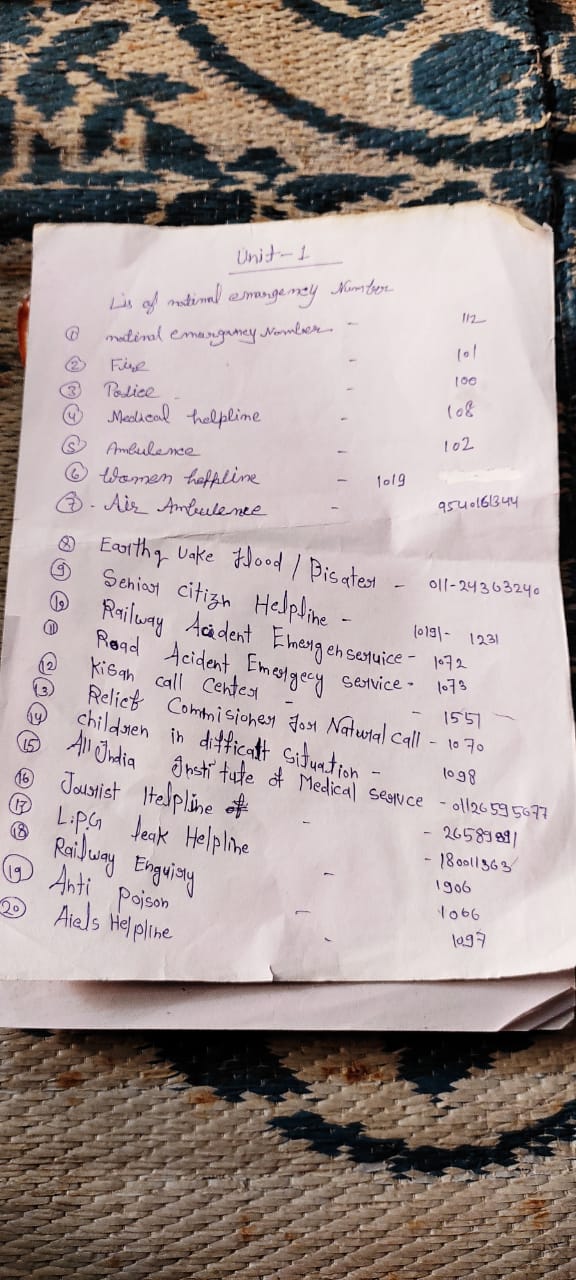 Unit-1
Lis of natinal emangemcy Number
① natinal emanguncy Nomber - 112
② Fire - 101
③ Police - 100
④ Medical helpline - 108
⑤ Ambulence - 102
⑥ Women helpline - 1019
⑦ - Air Ambulence - 9540161344
⑧ Earthq uake flood / Disater - 011-24363240
⑨ Senior citizn Helpline - 10191- 1231
⑩ Railway Acident Emergenservice - 1072
⑪ Road Acident Emergecy service - 1073
⑫ Kisan call Center - 1551
⑬ Relief Commisioner for Natural call - 1070
⑭ children in difficalt situation - 1098
⑮ All India Institute of Medical servce - 01126595677
- 26589891
⑯ Tourist Helpline - 180011363
⑰ L.P.G leak Helpline
⑱ Railway Enquiry - 1906
⑲ Anti Poison - 1066
⑳ Aids Helpline - 1097